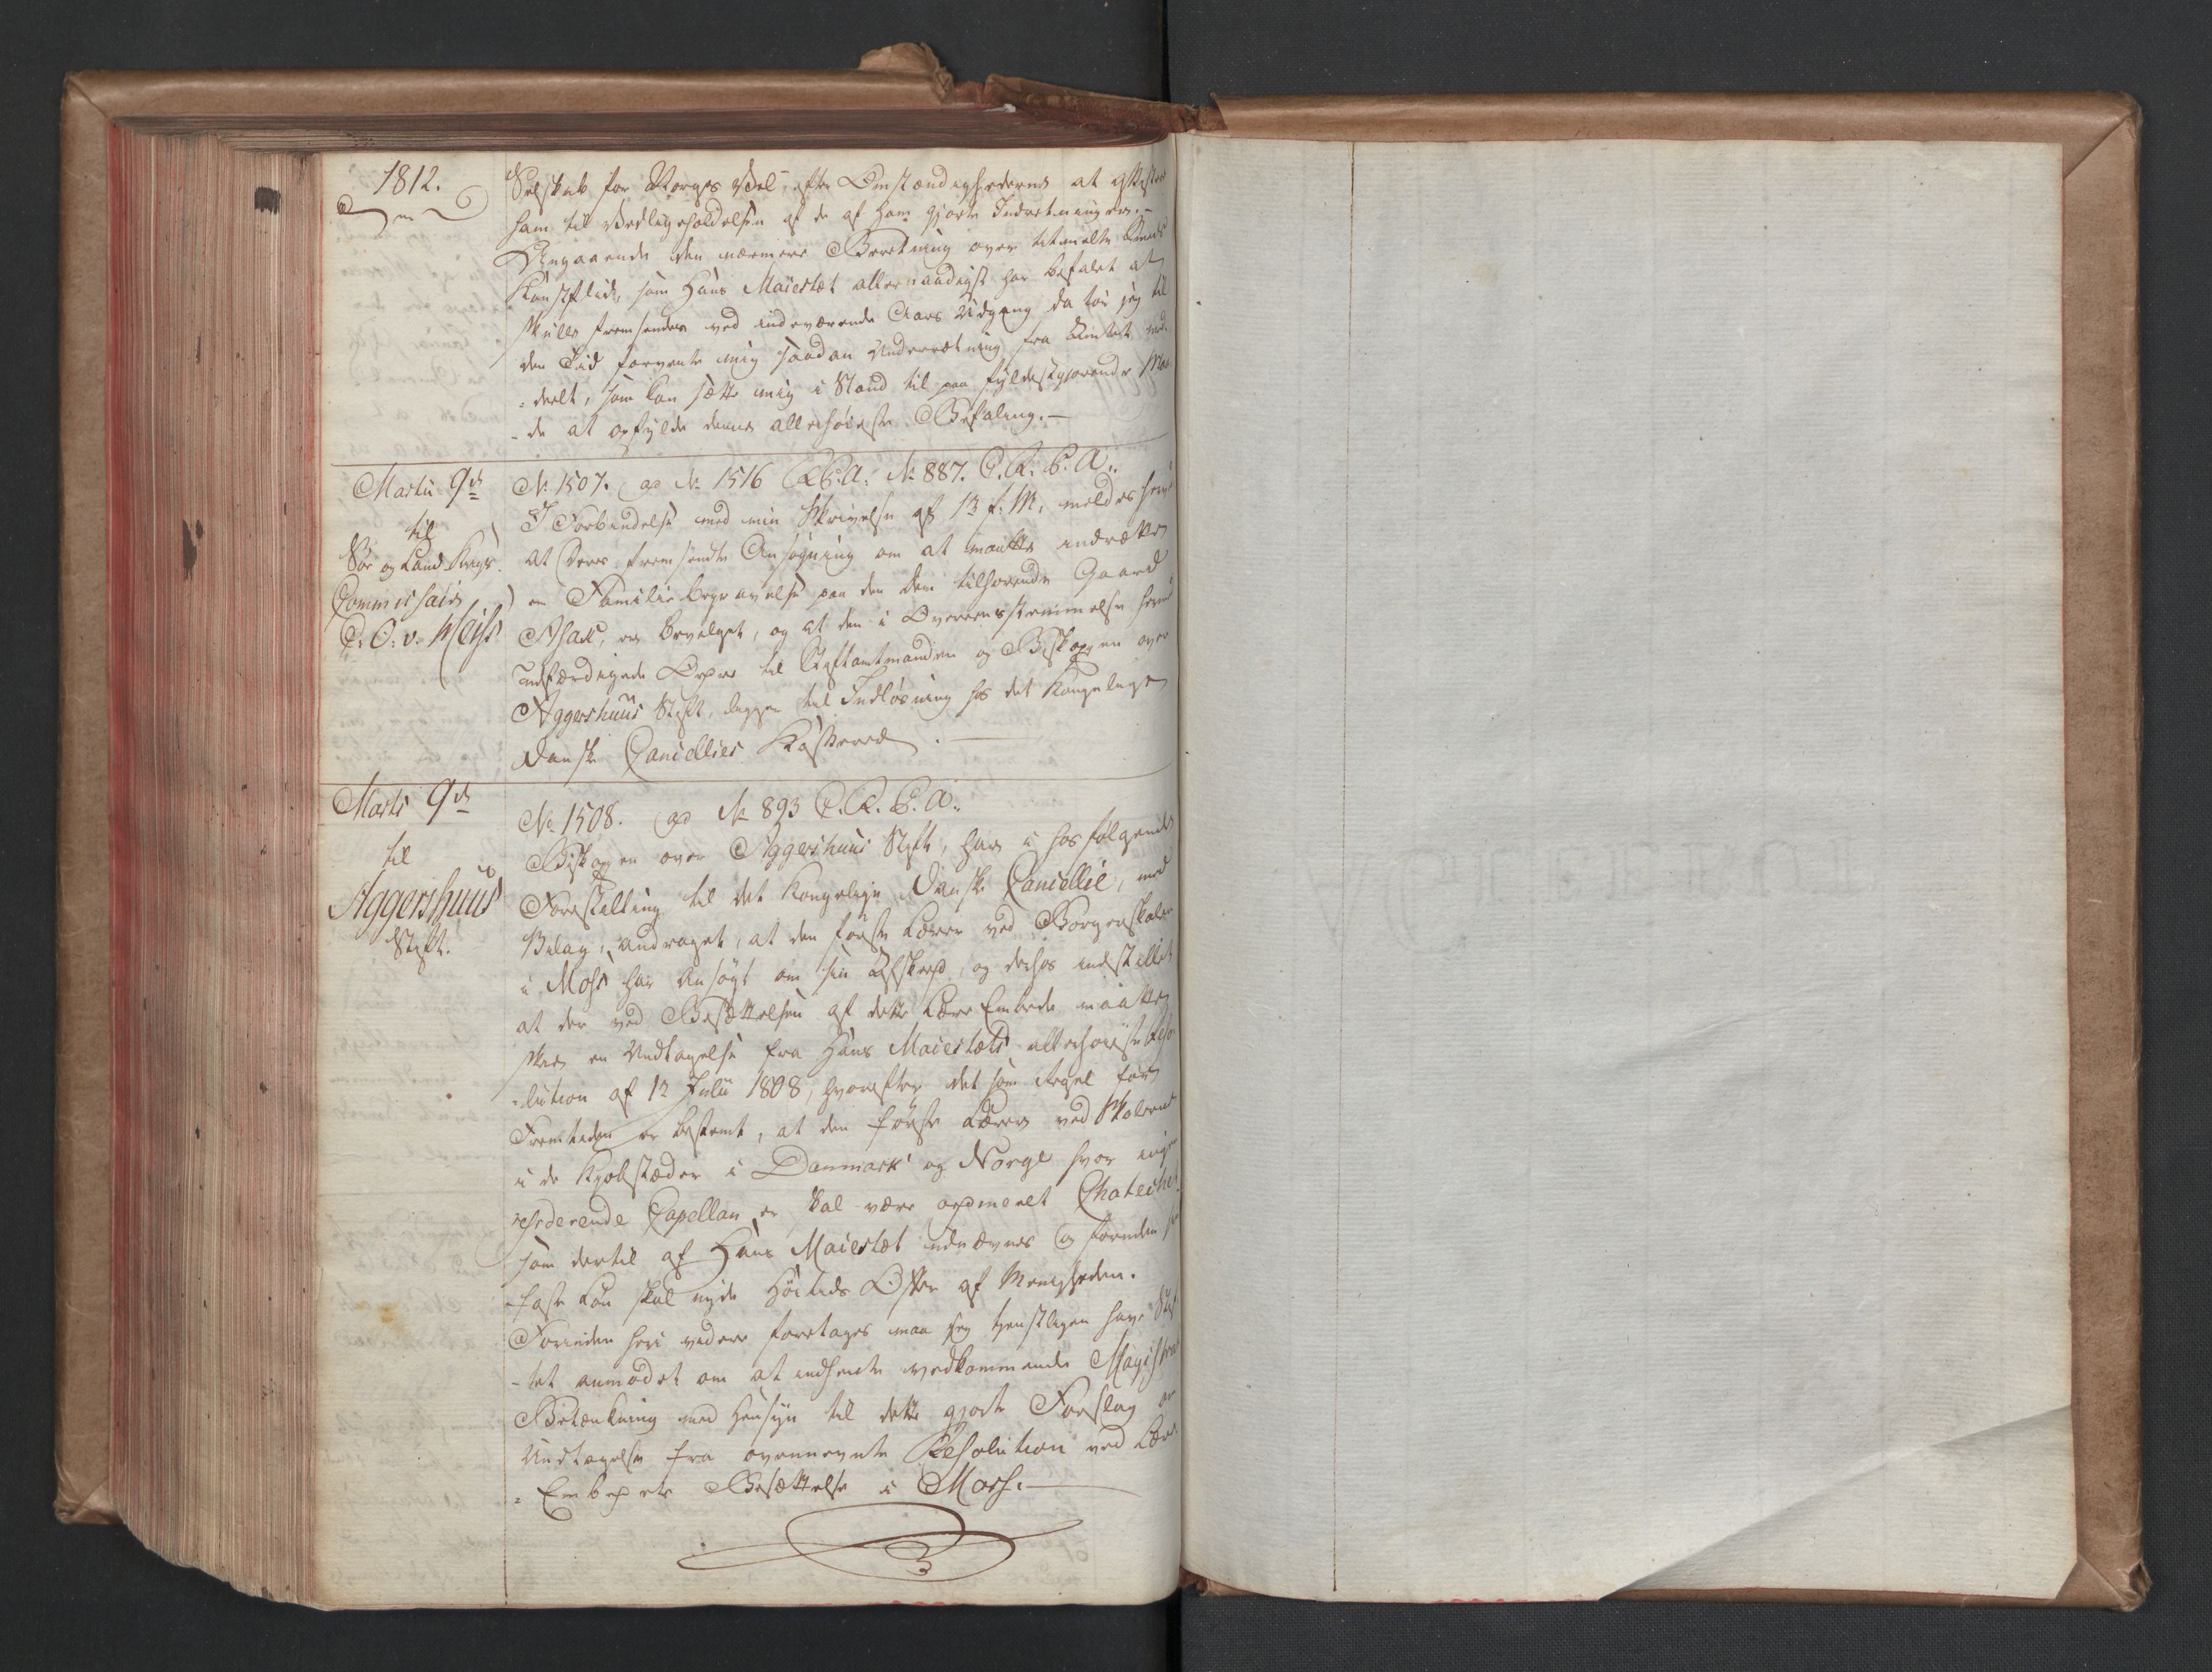 1812.
Selskab for Norges Vel, efter Omstændighederne at assistere
ham til Vedligeholdelsen af de af ham gjorte Indretninger. –
Angaaende den nærmere Beretning over bemelte
Konstflid, som Hans Maiestæt allernaadigst har befalet at
skulle fremsendes ved indeværende Aars Udgang da tør jeg til
den Tid forvente mig saadan Underretning fra Amtet med-
-deelt, som kan sætte mig i Stand til paa fyldestgjørende Maa-
-de at opfylde denne allerhøieste Befaling. –
Martii 9de
til
Søe og Land Krigs
Commissair
C: O: v: Kleist
No 1507. ad No 1516 No 887. C. R. B. A..
I Forbindelse med min Skrivelse af 13 f: M, meldes herved
at Deres fremsendte Ansøgning om at maatte indrette
en Familie begravelse paa den Dem tilhørende Gaard
Asak, er bevilget, og at den i Overeensstemmelse hermed
udfærdigede Ordre til Stiftamtmanden og Biskoppen over
Aggershuus Stift, ligger til Indløsning hos det Kongelige
Danske Cancellies Kasserer. –
Marts 9de
til
Aggershuus
Stift.
No 1508. ad No 893 C. R. B. A..
Biskoppen over Aggershuus Stift, har i hosfølgende
Forestilling til det Kongelige Danske Cancellie, med
Bilag, andraget, at den første Lærer ved Borgerskolen
i Moss har ansøgt om sin Afskeed, og derhos indstillet
at der ved Besættelsen af dette Lære Embede maatte
skee en Undtagelse fra Hans Maiestæts allerhøieste Reso-
-lution af 12 Julii 1808, hvorefter det som Regel for
Fremtiden er bestemt, at den første Lærer ved Skolerne
i de Kjøbstæder i Danmark og Norge hvor ingen
residerende Capellan er skal være ordineret Chatechet
som dertil af Hans Maiestæt udnævnes og foruden sin
faste Løn skal nyde Høitids Offer af Menigheden.
Forinden heri videre foretages maa jeg tjenstligen have Stif-
-tet anmodet om at indhente vedkommende Magistrats
Betænkning med Hensyn til dette gjorte Forslag om
Undtagelse fra ovennevnte Resolution ved Lære-
-Embedets Besættelse i Moss. –